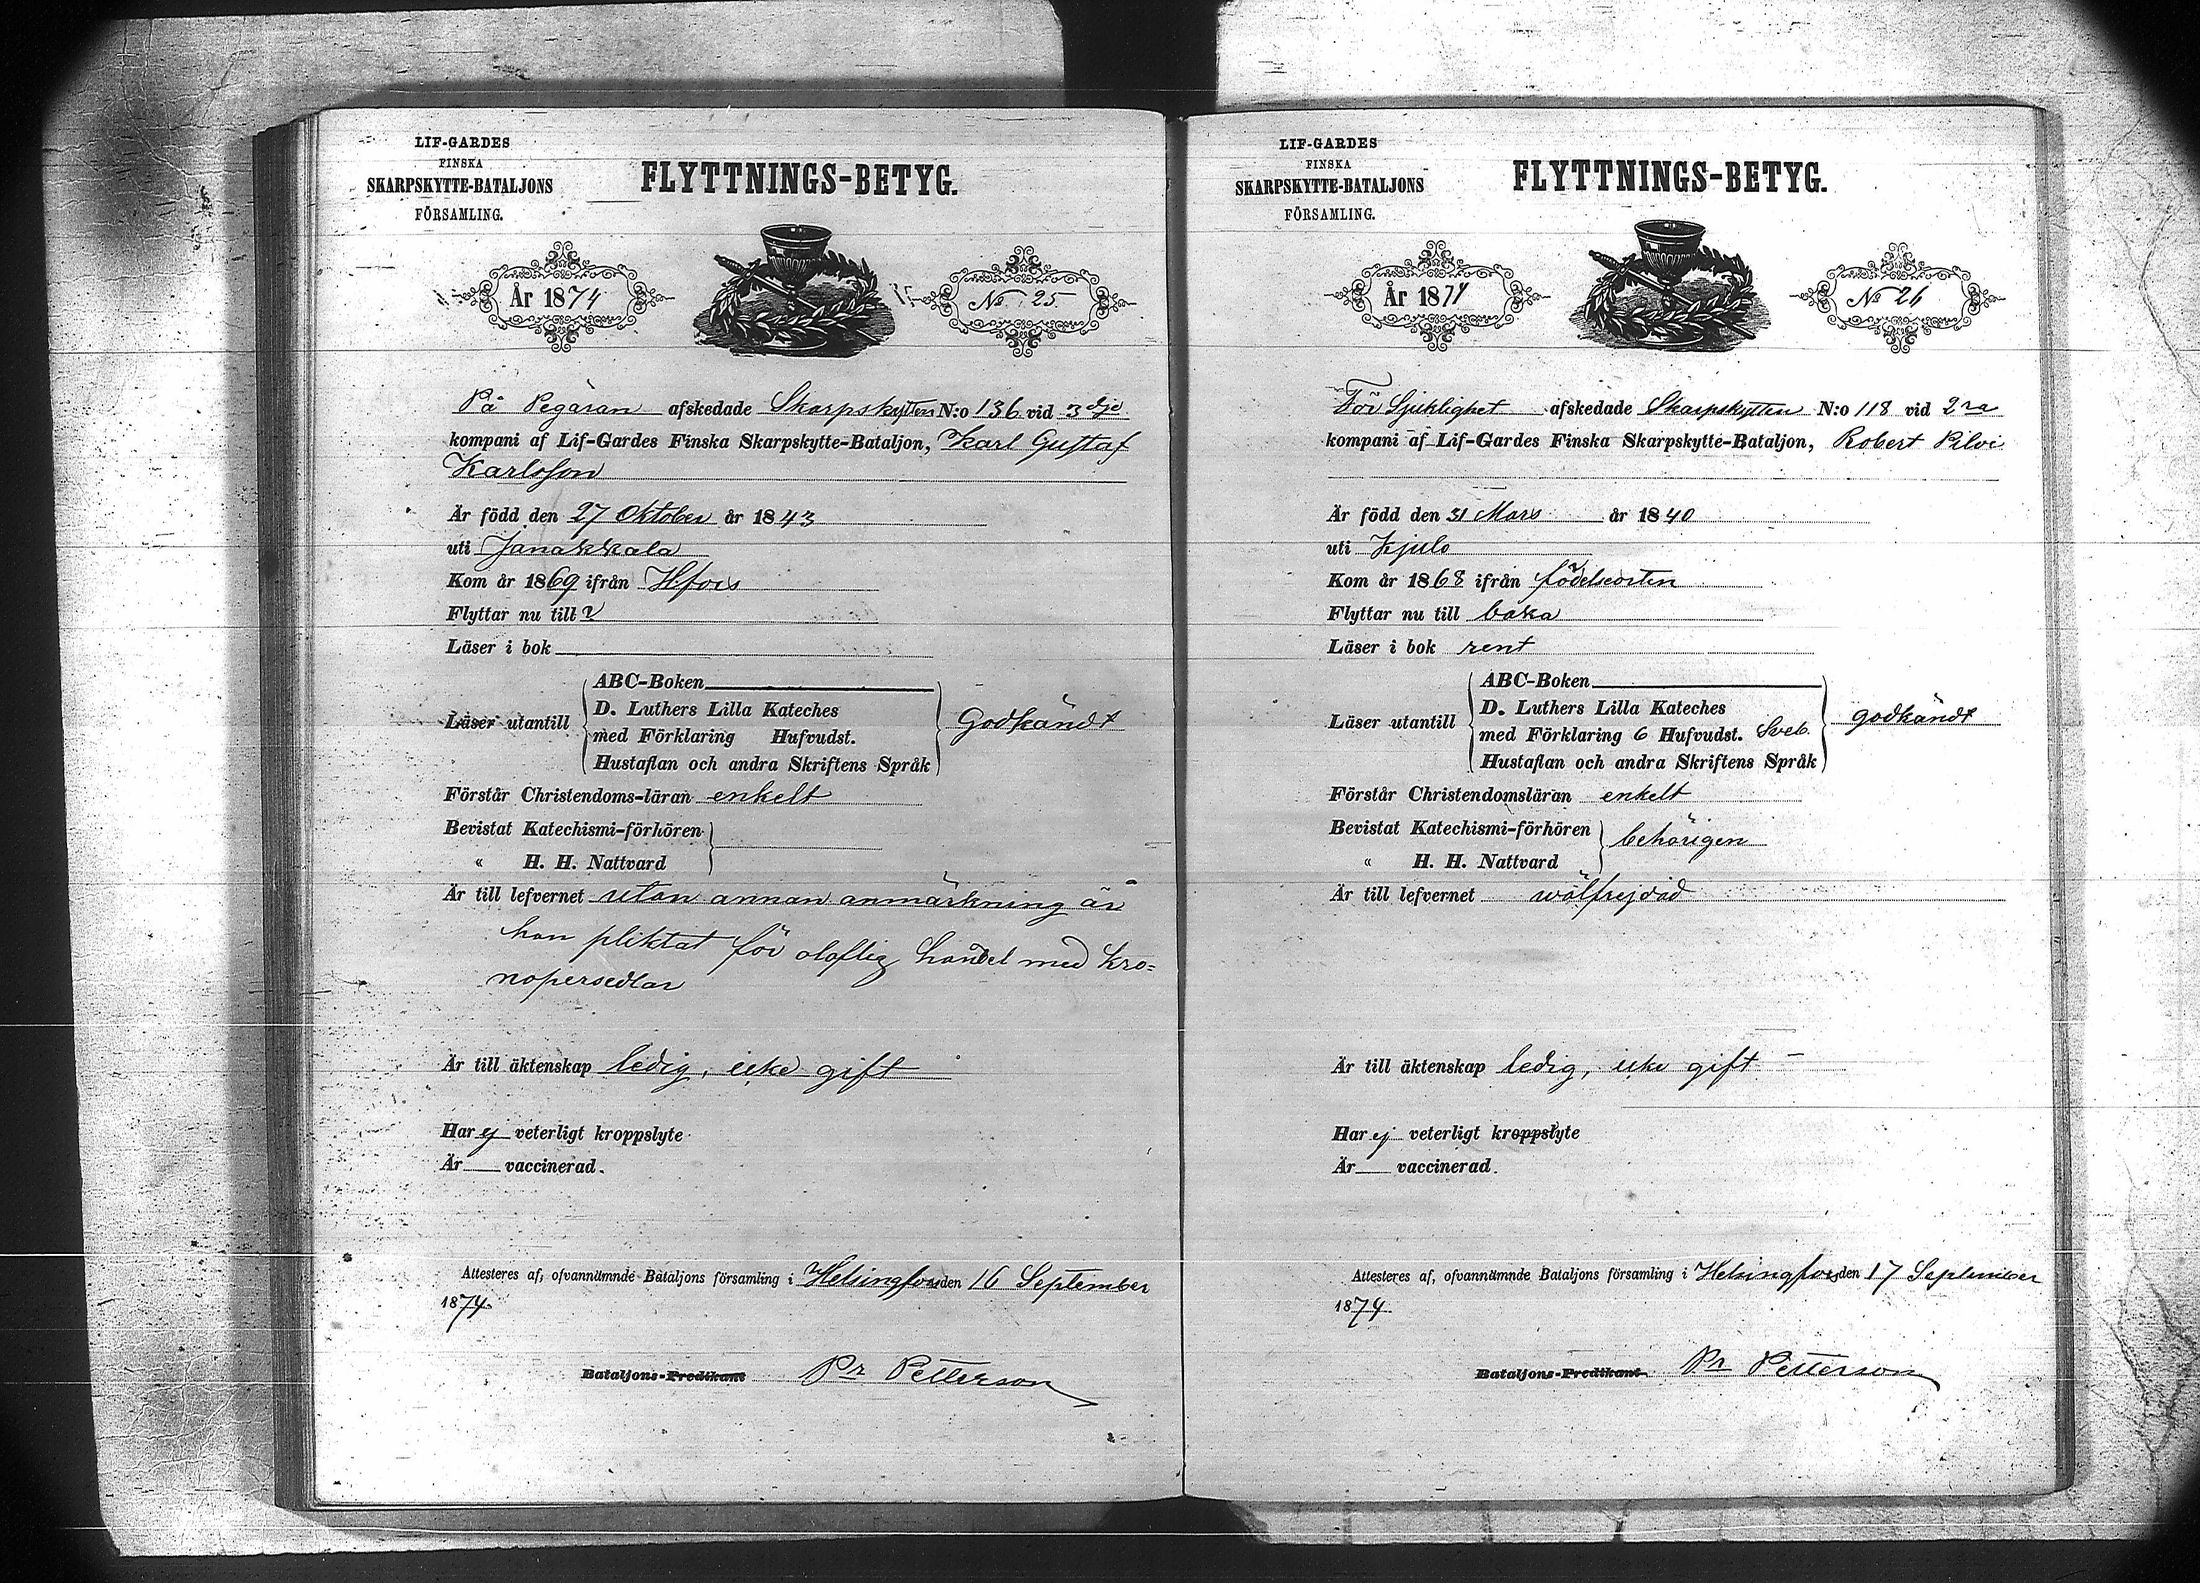 LIF-GARDES
FINSKA
SKARPSKYTTE-BATALJONS
FÖRSAMLING.
FLYTTNINGS-BETYG.
År 1874
No 25
På Begäran afskedade Skarpskytten N:o 136 vid 3dje
kompani af Lif-Gardes Finska Skarpskytte-Bataljon, Karl Gustaf
Karlsson
Är född den 27 Oktober år 1843
uti Janakkala
Kom år 1869 ifrån H:fors
Flyttar nu till
Läser i bok
Läser utantill
ABC-Boken
D. Luthers Lilla Kateches
med Förklaring Hufvudst.
Hustaflan och andra Skriftens Språk
Godkändt
Förstår Christendoms-läran enkelt
Bevistat Katechismi-förhören
" H. H. Nattvard
Är till lefvernet utan annan anmärkning än
han pliktat för oloflig handel med kro=
nopersedlar
Är till äktenskap ledig, icke gift
Har ej veterligt kroppslyte
Är vaccinerad.
Attesteres af, ofvannämnde Bataljons församling i Helsingfors den 16 September
1874.
Bataljons-Predikant Pr Petterson
LIF-GARDES
FINSKA
SKARPSKYTTE-BATALJONS
FÖRSAMLING.
FLYTTNINGS-BETYG.
År 1874
No 26
För Sjuklighet afskedade Skarpskytten N:o 118 vid 2ra
kompani af Lif-Gardes Finska Skarpskytte-Bataljon, Robert Pilvi
Är född den 31 Mars år 1840
uti Kjulo
Kom år 1868 ifrån födelseorten
Flyttar nu till baka
Läser i bok rent
Läser utantill
ABC-Boken
D. Luthers Lilla Kateches
med Förklaring 6 Hufvudst. Sveb.
Hustaflan och andra Skriftens Språk
godkändt
Förstår Christendomsläran enkelt
Bevistat Katechismi-förhören
" H. H. Nattvard
behörigen
Är till lefvernet wälfrejdad
Är till äktenskap ledig, icke gift
Har ej veterligt kroppslyte
Är vaccinerad.
Attesteres af, ofvannämnde Bataljons församling i Helsingfors den 17 September
1874.
Bataljons-Predikant Pr Petterson